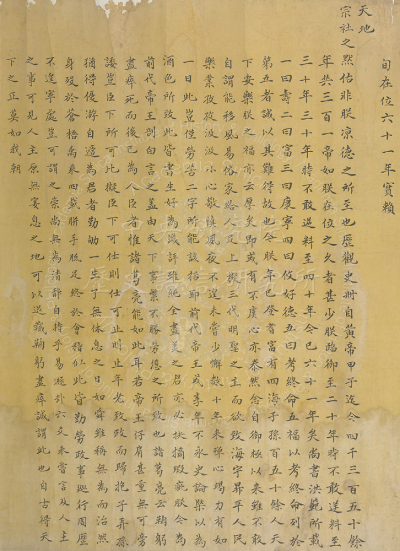 旬在位六十一年實賴
天地
宗社之默佑非朕涼德之所至也歷觀史冊自黃帝甲子迄今四千三百五十餘
年共三百一帝如朕在位之久者甚少朕臨御至二十年時不敢逆料至
三十年三十年時不敢逆料至四十年今已六十一年矣尚書洪範所載
一曰壽二曰富三曰康寧四曰攸好德五曰考終命五福以考終命列於
第五者誠以其難得故也今朕年已登耆富有四海子孫百五十餘人天
下安樂朕之福亦云厚矣即或有不虞心亦泰然念自御極以來雖不敢
自謂能移風易俗家給人足上擬三代明聖之主而欲致海宇昇平人民
樂業孜孜汲汲小心敬慎夙夜不遑未嘗少懈數十年來殫心竭力有如
一日此豈僅勞苦二字所能該括耶前代帝王或享年不永史論槩以為
酒色所致此皆書生好為譏評雖純全盡美之君亦必抉摘瑕疵朕今為
前代帝王剖白言之蓋由天下事繁不勝勞憊之所致也諸葛亮云鞠躬
盡瘁死而後已為人臣者惟諸葛亮能如此耳若帝王仔肩甚重無可旁
諉豈臣下所可比擬臣下可仕則仕可止則止年老致政而歸抱子弄孫
猶得優游自適為君者勤劬一生了無休息之日如舜雖稱無為而治然
身歿於蒼梧禹乘四載胼手胝足終於會稽似此皆勤勞政事巡行周歷
不遑寧處豈可謂之崇尚無為清靜自持乎易遯卦六爻未嘗言及人主
之事可見人主原無宴息之地可以退藏鞠躬盡瘁誠謂此也自古得天
下之正莫如我朝